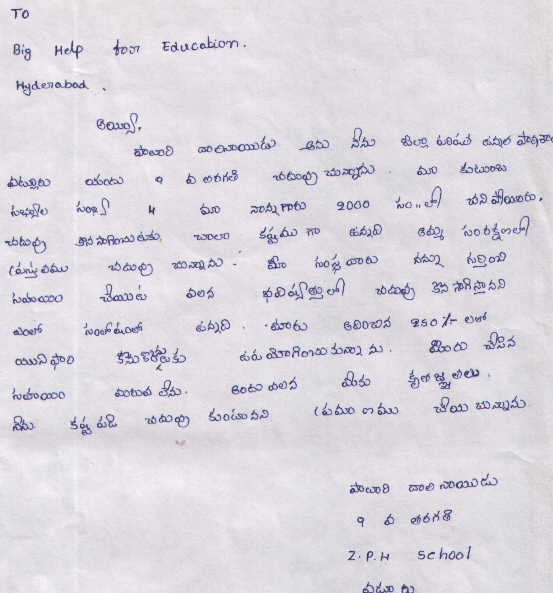 TO
Big Help for Education.
Hyderabad.
అయ్యా,
దాలినాయుడు అను నేను జిల్లా పరిషత్ ఉన్నత పాఠశాల
యందు 9 వ తరగతి చదువు చున్నాను. మా కుటుంబ
సభ్యుల సంఖ్య 4 మా నాన్న గారు 2000 సం..లో చని పోయారు.
చదువు కొన సాగించుటకు చాలా కష్టము గా ఉన్నది అమ్మ సంరక్షణలో
ప్రస్తుతము చదువు చున్నాను. మీ సంస్థ వారు నన్ను గుర్తించి
సహాయం చేయుట వలన భవిష్యత్తులో చదువు కొన సాగిస్తానని
ఎంతో సంతోషంతో ఉన్నది. మీరు అందించిన 250/- లతో
యునిఫారం కొనుక్కొనుటకు ఉపయోగించుకున్నాను. మీరు చేసిన
సహాయం మరువ లేను. అందు వలన మీకు కృతజ్ఞతలు.
నేను కష్ట పడి చదువు కుంటానని ప్రమాణము చేయు చున్నాను
దాలి నాయుడు
9 వ తరగతి
Z.P.H School